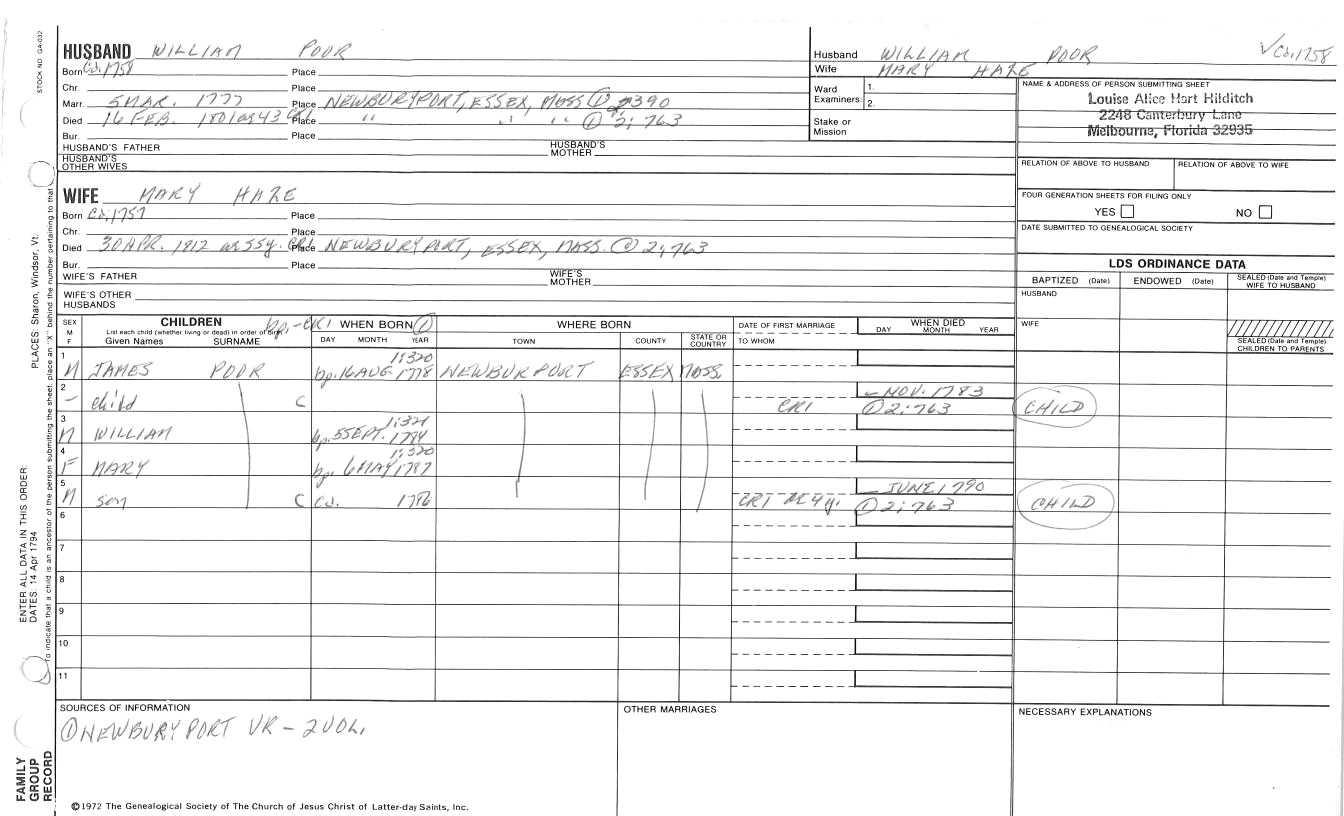 STOCK NO. GA-032
HUSBAND WILLIAM POOR
Born Ca. 1758 Place
Chr. Place
Marr. 5 MAR. 1777 Place NEWBURYPORT, ESSEX, MASS ① 2:390
Died 16 FEB. 1801 ae 43 CR1 Place " " " ① 2; 763
Bur. Place
HUSBAND'S FATHER HUSBAND'S MOTHER
HUSBAND'S OTHER WIVES
Husband WILLIAM POOR ✓Ca. 1758
Wife MARY HAZE
Ward 1.
Examiners: 2.
Stake or Mission
NAME & ADDRESS OF PERSON SUBMITTING SHEET
Louise Alice Hart Hilditch
2248 Canterbury Lane
Melbourne, Florida 32935
RELATION OF ABOVE TO HUSBAND RELATION OF ABOVE TO WIFE
FOUR GENERATION SHEETS FOR FILING ONLY
YES NO
DATE SUBMITTED TO GENEALOGICAL SOCIETY
WIFE MARY HAZE
Born Ca. 1757 Place
Chr. Place
Died 30 APR. 1812 ae 55y. CR1 Place NEWBURYPORT, ESSEX, MASS. ① 2; 763
Bur. Place
WIFE'S FATHER WIFE'S MOTHER
WIFE'S OTHER HUSBANDS
LDS ORDINANCE DATA
BAPTIZED (Date) ENDOWED (Date) SEALED (Date and Temple) WIFE TO HUSBAND
HUSBAND
WIFE
SEALED (Date and Temple) CHILDREN TO PARENTS
SEX M F CHILDREN bp.-CR1 WHEN BORN ① WHERE BORN DATE OF FIRST MARRIAGE WHEN DIED
List each child (whether living or dead) in order of birth
Given Names SURNAME DAY MONTH YEAR TOWN COUNTY STATE OR COUNTRY TO WHOM DAY MONTH YEAR
1 1:320
M JAMES POOR bp. 16 AUG. 1778 NEWBURPORT ESSEX MASS.
2 - NOV. 1783
- child C CR1 ① 2; 763 CHILD
3 1:321
M WILLIAM bp. 5 SEPT. 1784
4 1:320
F MARY bp. 6 MAY 1787
5 - JUNE 1790
M son C Ca. 1786 CR1 ae 4y. ① 2; 763 CHILD
6
7
8
9
10
11
SOURCES OF INFORMATION OTHER MARRIAGES NECESSARY EXPLANATIONS
① NEWBURYPORT VR - 2 VOL.
©1972 The Genealogical Society of The Church of Jesus Christ of Latter-day Saints, Inc.
PLACES: Sharon, Windsor, Vt.
ENTER ALL DATA IN THIS ORDER:
DATES: 14 Apr 1794
To indicate that a child is an ancestor of the person submitting the sheet, place an "X" behind the number pertaining to that
FAMILY GROUP RECORD